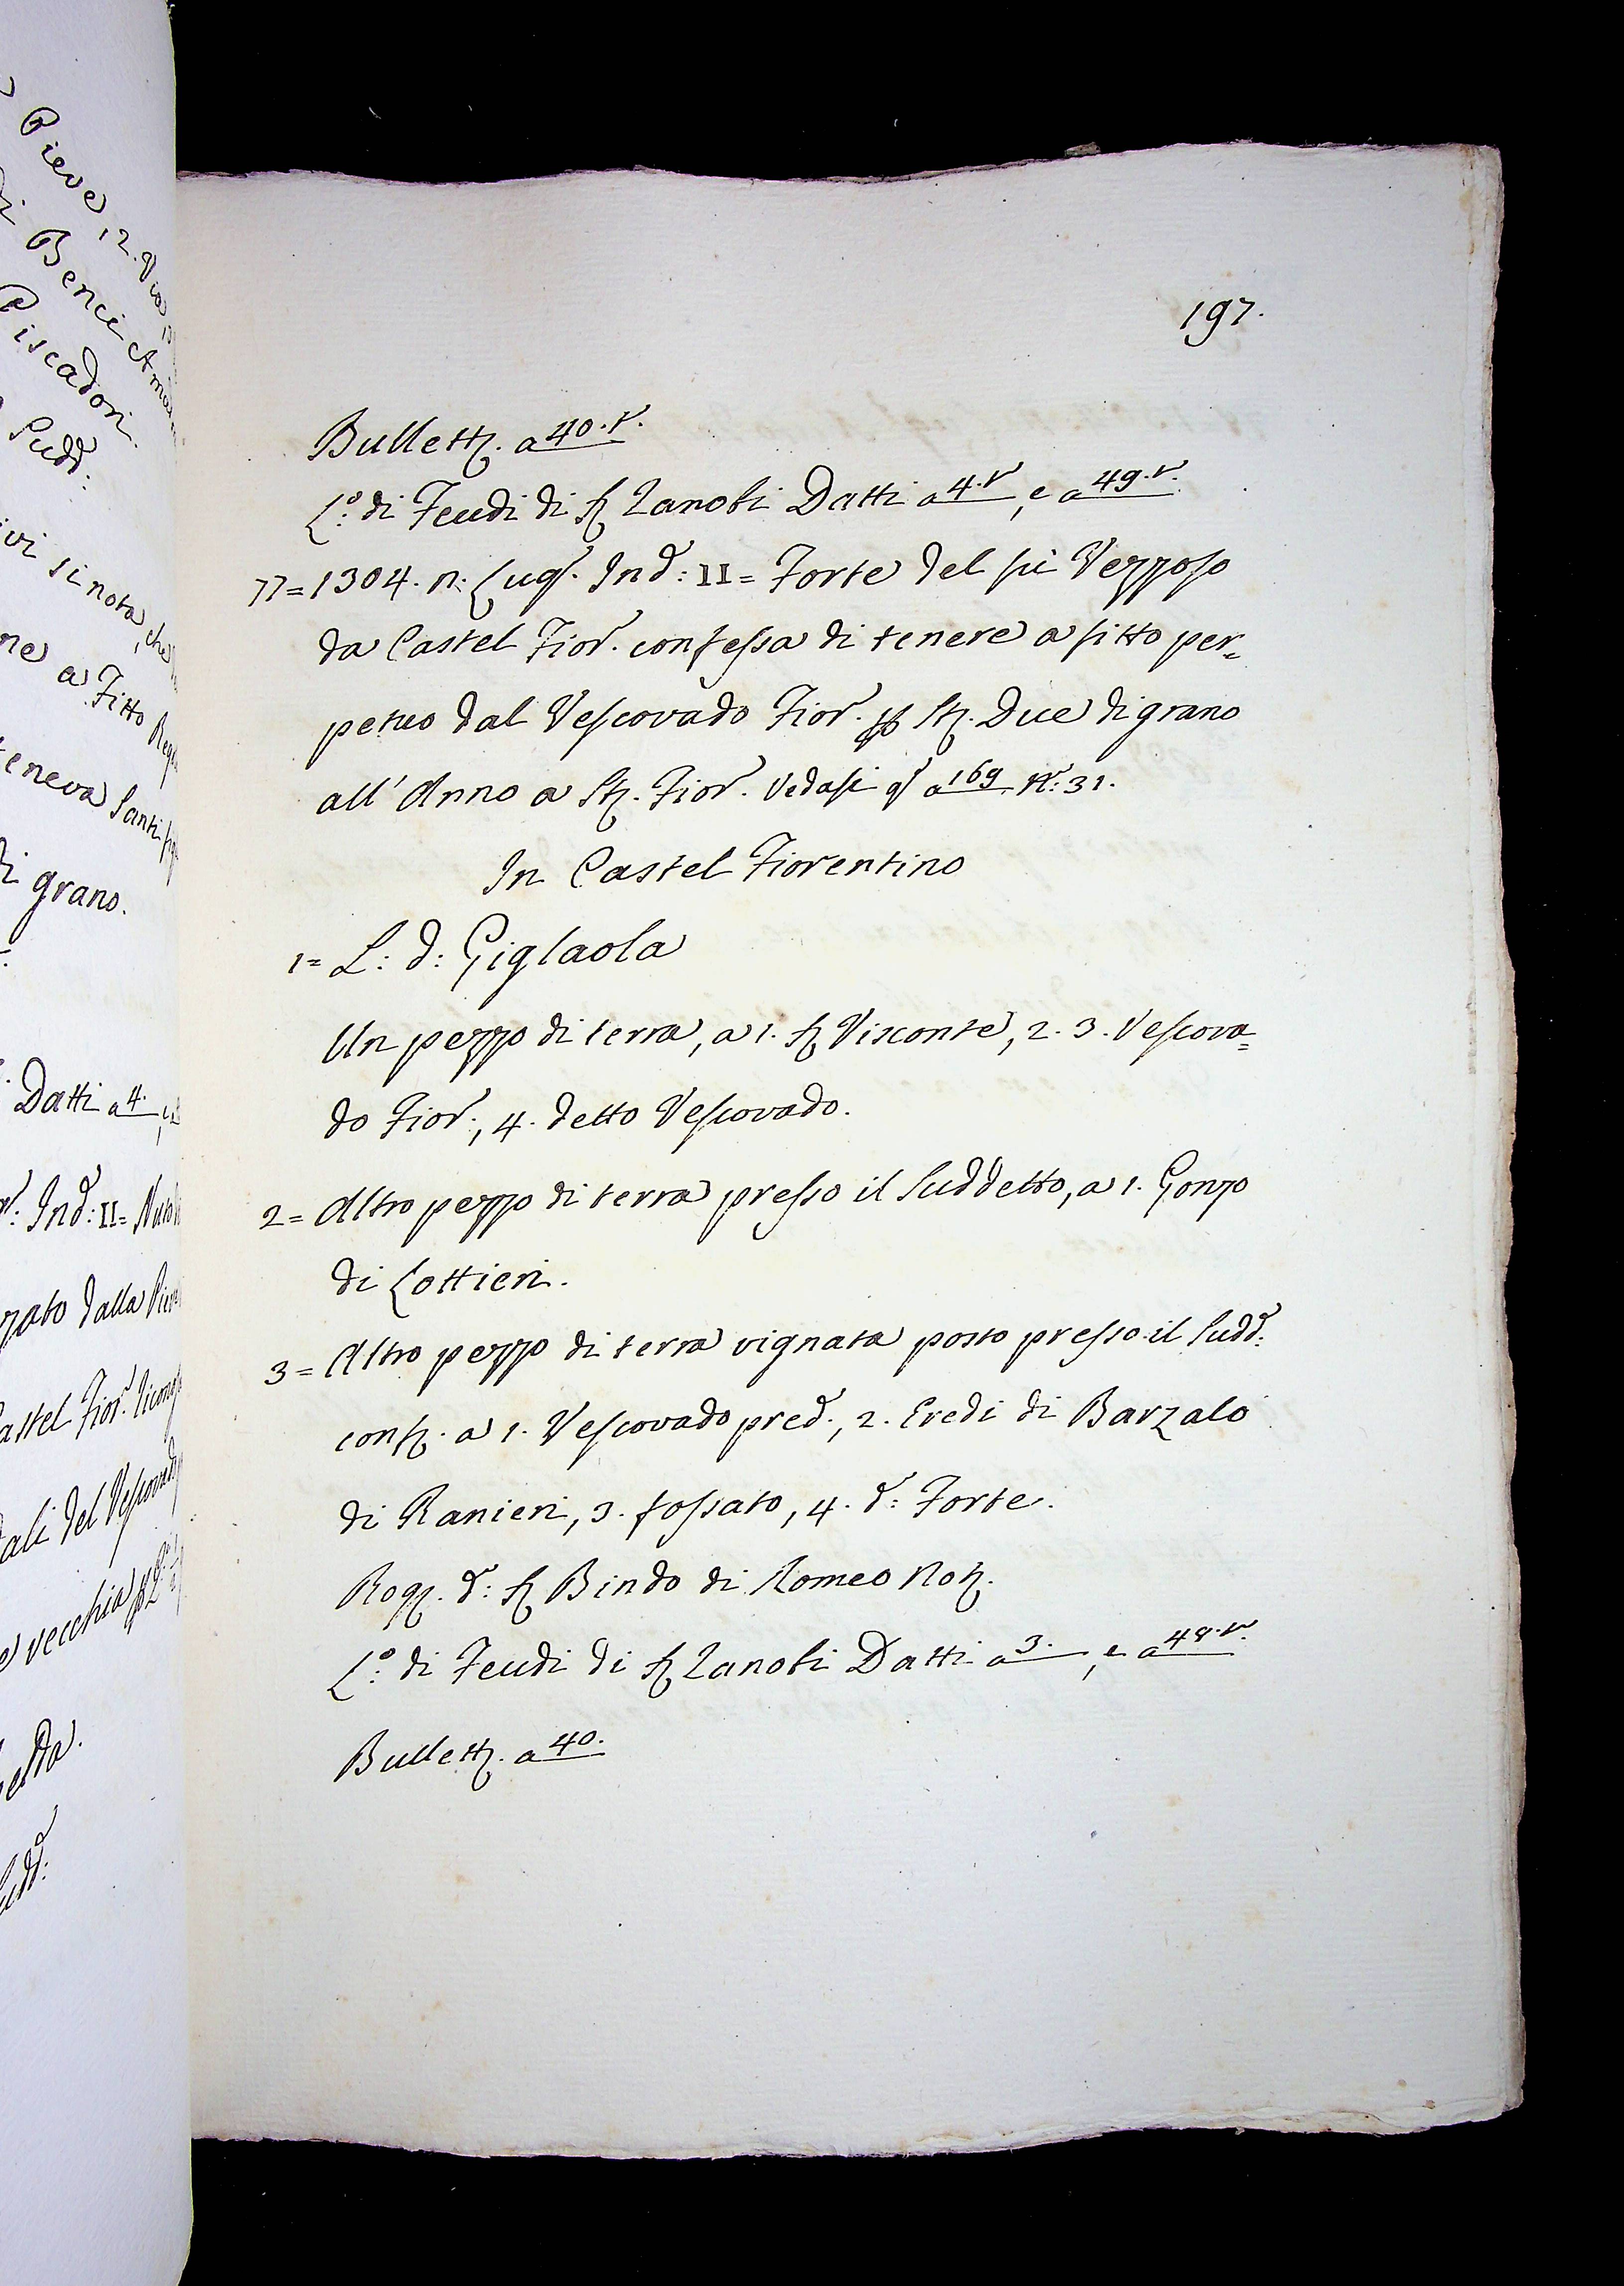 197.
Bullett. a 40.v.
L.º di Feudi di S. Zanobi Datti a 4.v, e a 49.v.
77= 1304. n: Lug. Ind: II= Forte del fù Vezzoso
da Castel Fior. confessa di tenere a fitto per=
petuo dal Vescovado Fior. p St. Due di grano
all'Anno a St. Fior. Vedasi q a 169 N: 31.
In Castel Fiorentino
1= L: d: Giglaola
Un pezzo di terra, a 1. S. Visconte, 2. 3. Vescova=
do Fior., 4. detto Vescovado.
2= Altro pezzo di terra presso il Suddetto, a 1. Gonzo
di Lottieri.
3= Altro pezzo di terra vignata posto presso il Sudd:
conf. a 1. Vescovado pred., 2. Eredi di Barzalo
di Ranieri, 3. fossato, 4. d: Forte.
Rog. d: S. Bindo di Romeo Not.
L.º di Feudi di S. Zanobi Datti a 3., e a 48.v.
Bullett. a 40.
Pieve, 2. Via,
Benci
Piscadori.
Sudd:
si nota, che
a Fitto
teneva Santi
grano.
Datti a 4.
Ind: II=
dalla
Castel Fior.
del Vescovado
vecchia
Sudd: